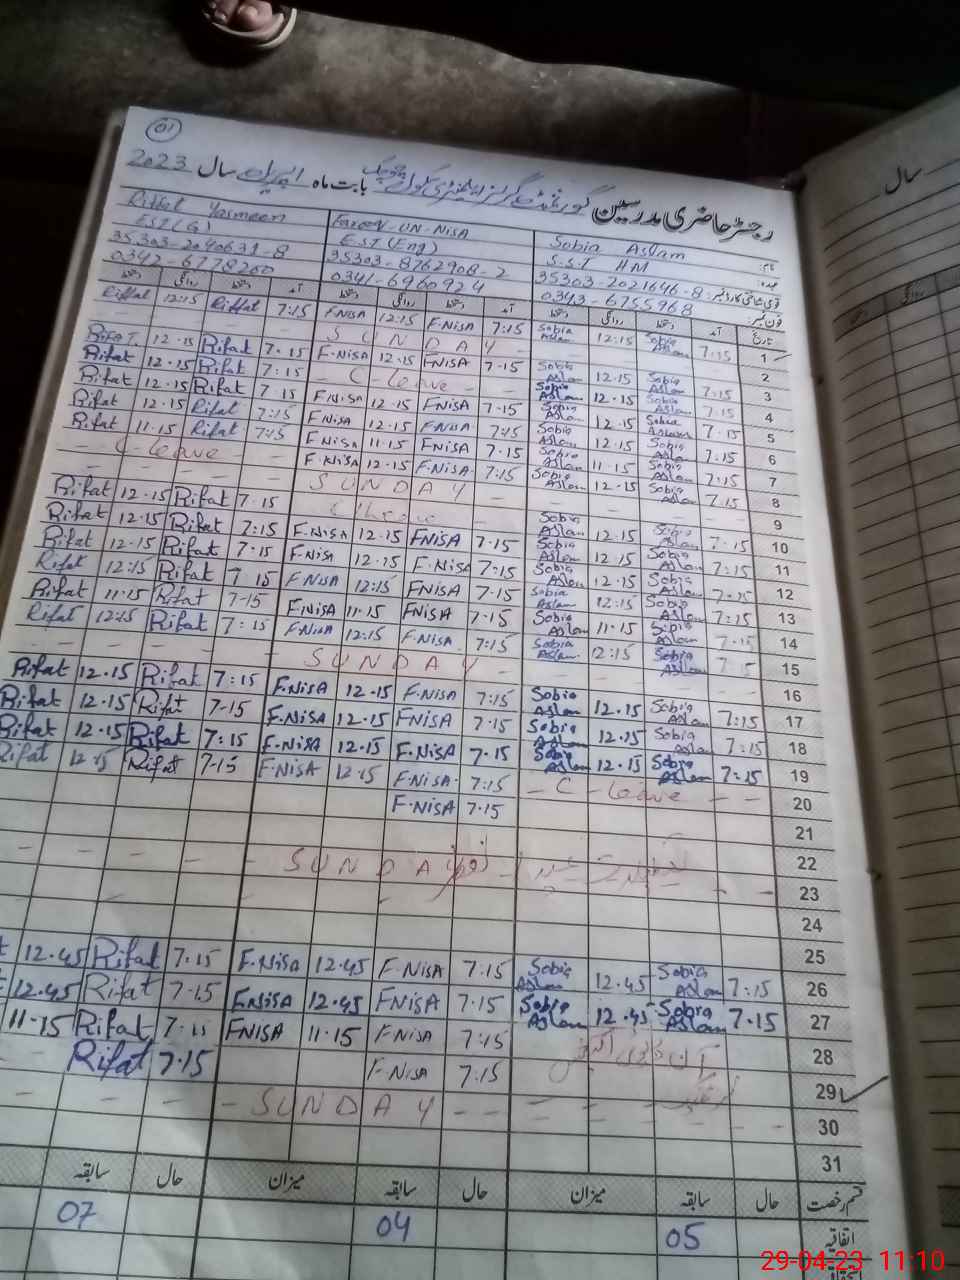 01
رجسٹر حاضری مدرسین گورنمنٹ گرلز بابت ماہ اپریل سال 2023
سال
Riffat Yasmeen
Nisa
Sobia Aslam نام:
EST(G) EST(Eng) S.S.T HM عہدہ:
35303-2040631-8 35303-8762908-2 35303-2021646-8 قومی شناختی کارڈ نمبر:
0342-6778200 0341-6960924 0343-6755968 فون نمبر:
دستخط روانگی دستخط آمد دستخط روانگی دستخط آمد دستخط روانگی دستخط آمد تاریخ
Riffat 12:15 Riffat 7:15 F.NISA 12.15 F.NISA 7:15 Sobia Aslam 12:15 Sobia Aslam 7:15 1
SUNDAY 2
Rifat 12.15 Rifat 7.15 F.NISA 12.15 FNISA 7.15 Sobia Aslam 12.15 Sobia Aslam 7:15 3
Rifat 12.15 Rifat 7:15 C-leave Sobia Aslam 12.15 Sobia Aslam 7:15 4
Rifat 12.15 Rifat 7.15 F.NISA 12.15 FNISA 7.15 Sobia Aslam 12.15 Sobia Aslam 7.15 5
Rifat 12.15 Rifat 7:15 F.NISA 12.15 FNISA 7:15 Sobia Aslam 12.15 Sobia Aslam 7:15 6
Rifat 11.15 Rifat 7:15 F.NISA 11.15 F.NISA 7.15 Sobia Aslam 11.15 Sobia Aslam 7:15 7
C-leave F.NISA 12.15 F.NISA 7:15 Sobia Aslam 12.15 Sobia Aslam 7.15 8
SUNDAY 9
Rifat 12.15 Rifat 7.15 C-leave Sobia Aslam 12.15 Sobia Aslam 7:15 10
Rifat 12.15 Rifat 7:15 F.NISA 12.15 FNISA 7.15 Sobia Aslam 12.15 Sobia Aslam 7:15 11
Rifat 12.15 Rifat 7:15 F.NISA 12.15 F.NISA 7:15 Sobia Aslam 12.15 Sobia Aslam 7:15 12
Rifat 12:15 Rifat 7.15 F.NISA 12:15 FNISA 7.15 Sobia Aslam 12:15 Sobia Aslam 7:15 13
Rifat 11.15 Rifat 7.15 F.NISA 11.15 FNISA 7.15 Sobia Aslam 11.15 Sobia Aslam 7.15 14
Rifat 12:15 Rifat 7:15 F.NISA 12:15 F.NISA 7:15 Sobia Aslam 12:15 Sobia Aslam 7.15 15
SUNDAY 16
Rifat 12.15 Rifat 7:15 F.NISA 12.15 F.NISA 7:15 Sobia Aslam 12.15 Sobia Aslam 7:15 17
Rifat 12.15 Rifat 7.15 F.NISA 12.15 FNISA 7.15 Sobia Aslam 12.15 Sobia Aslam 7:15 18
Rifat 12.15 Rifat 7:15 F.NISA 12.15 F.NISA 7.15 Sobia Aslam 12.15 Sobia Aslam 7:15 19
Rifat 12.15 Rifat 7.15 F.NISA 12.15 F.NISA 7:15 C-leave 20
F.NISA 7.15 21
22
SUNDAY 23
24
25
12.45 Rifat 7.15 F.NISA 12.45 F.NISA 7:15 Sobia Aslam 12.45 Sobia Aslam 7:15 26
12.45 Rifat 7.15 F.NISA 12.45 FNISA 7.15 Sobia Aslam 12.45 Sobia Aslam 7.15 27
11.15 Rifat 7.15 FNISA 11.15 F.NISA 7:15 28
Rifat 7.15 F.NISA 7:15 29
SUNDAY 30
31
سابقہ حال میزان سابقہ حال میزان سابقہ حال قسم رخصت
07 04 05 اتفاقیہ
29-04-23 11:10